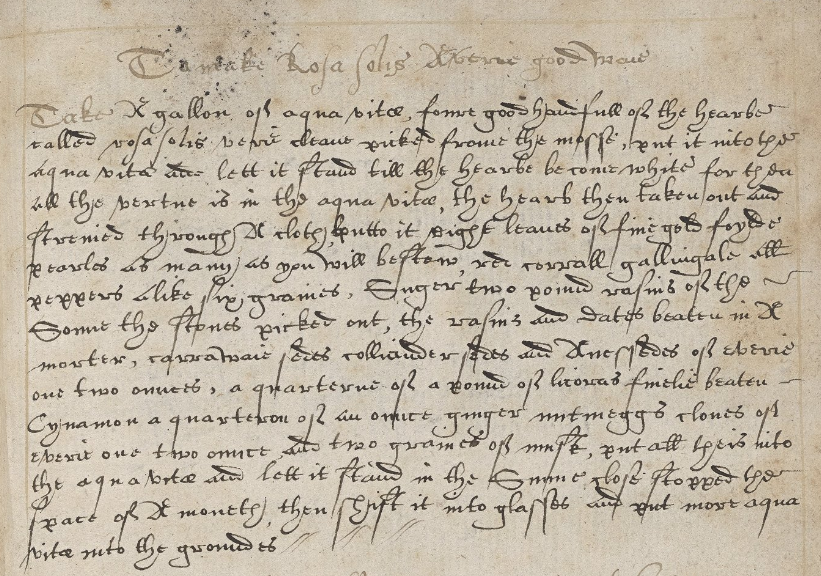 To make Rosa solis A verie good waie
Take A gallon of aqua vitæ, foure good handfull of the hearbe
called rosa solis verie cleane picked frome the mosse, put it into the
aqua vitæ and lett it stand till the hearbe become white for then
all the vertue is in the aqua vitæ, the hearb then taken out and
streined through A cloth, putto it eight leaves of fine gold foyled
pearles as many as you will bestow, red corrall gallingale all
peppers alike six graines, Suger two pound rasins of the
Sonne the stones picked out, the rasins and dates beaten in A
morter, carrawaie sedes colliander sedes and Anessedes of everie
one two onnces, a quarterne of a pound of licoras finelie beaten
Cynamon a quarteron of an onnce ginger nutmeggs cloves of
everie one two onnce and two graines of musk, put all theis into
the aqua vitæ and lett it stand in the Sunne close stopped the
space of A moneth, then shift it into glasses and put more aqua
vitæ into the groundes